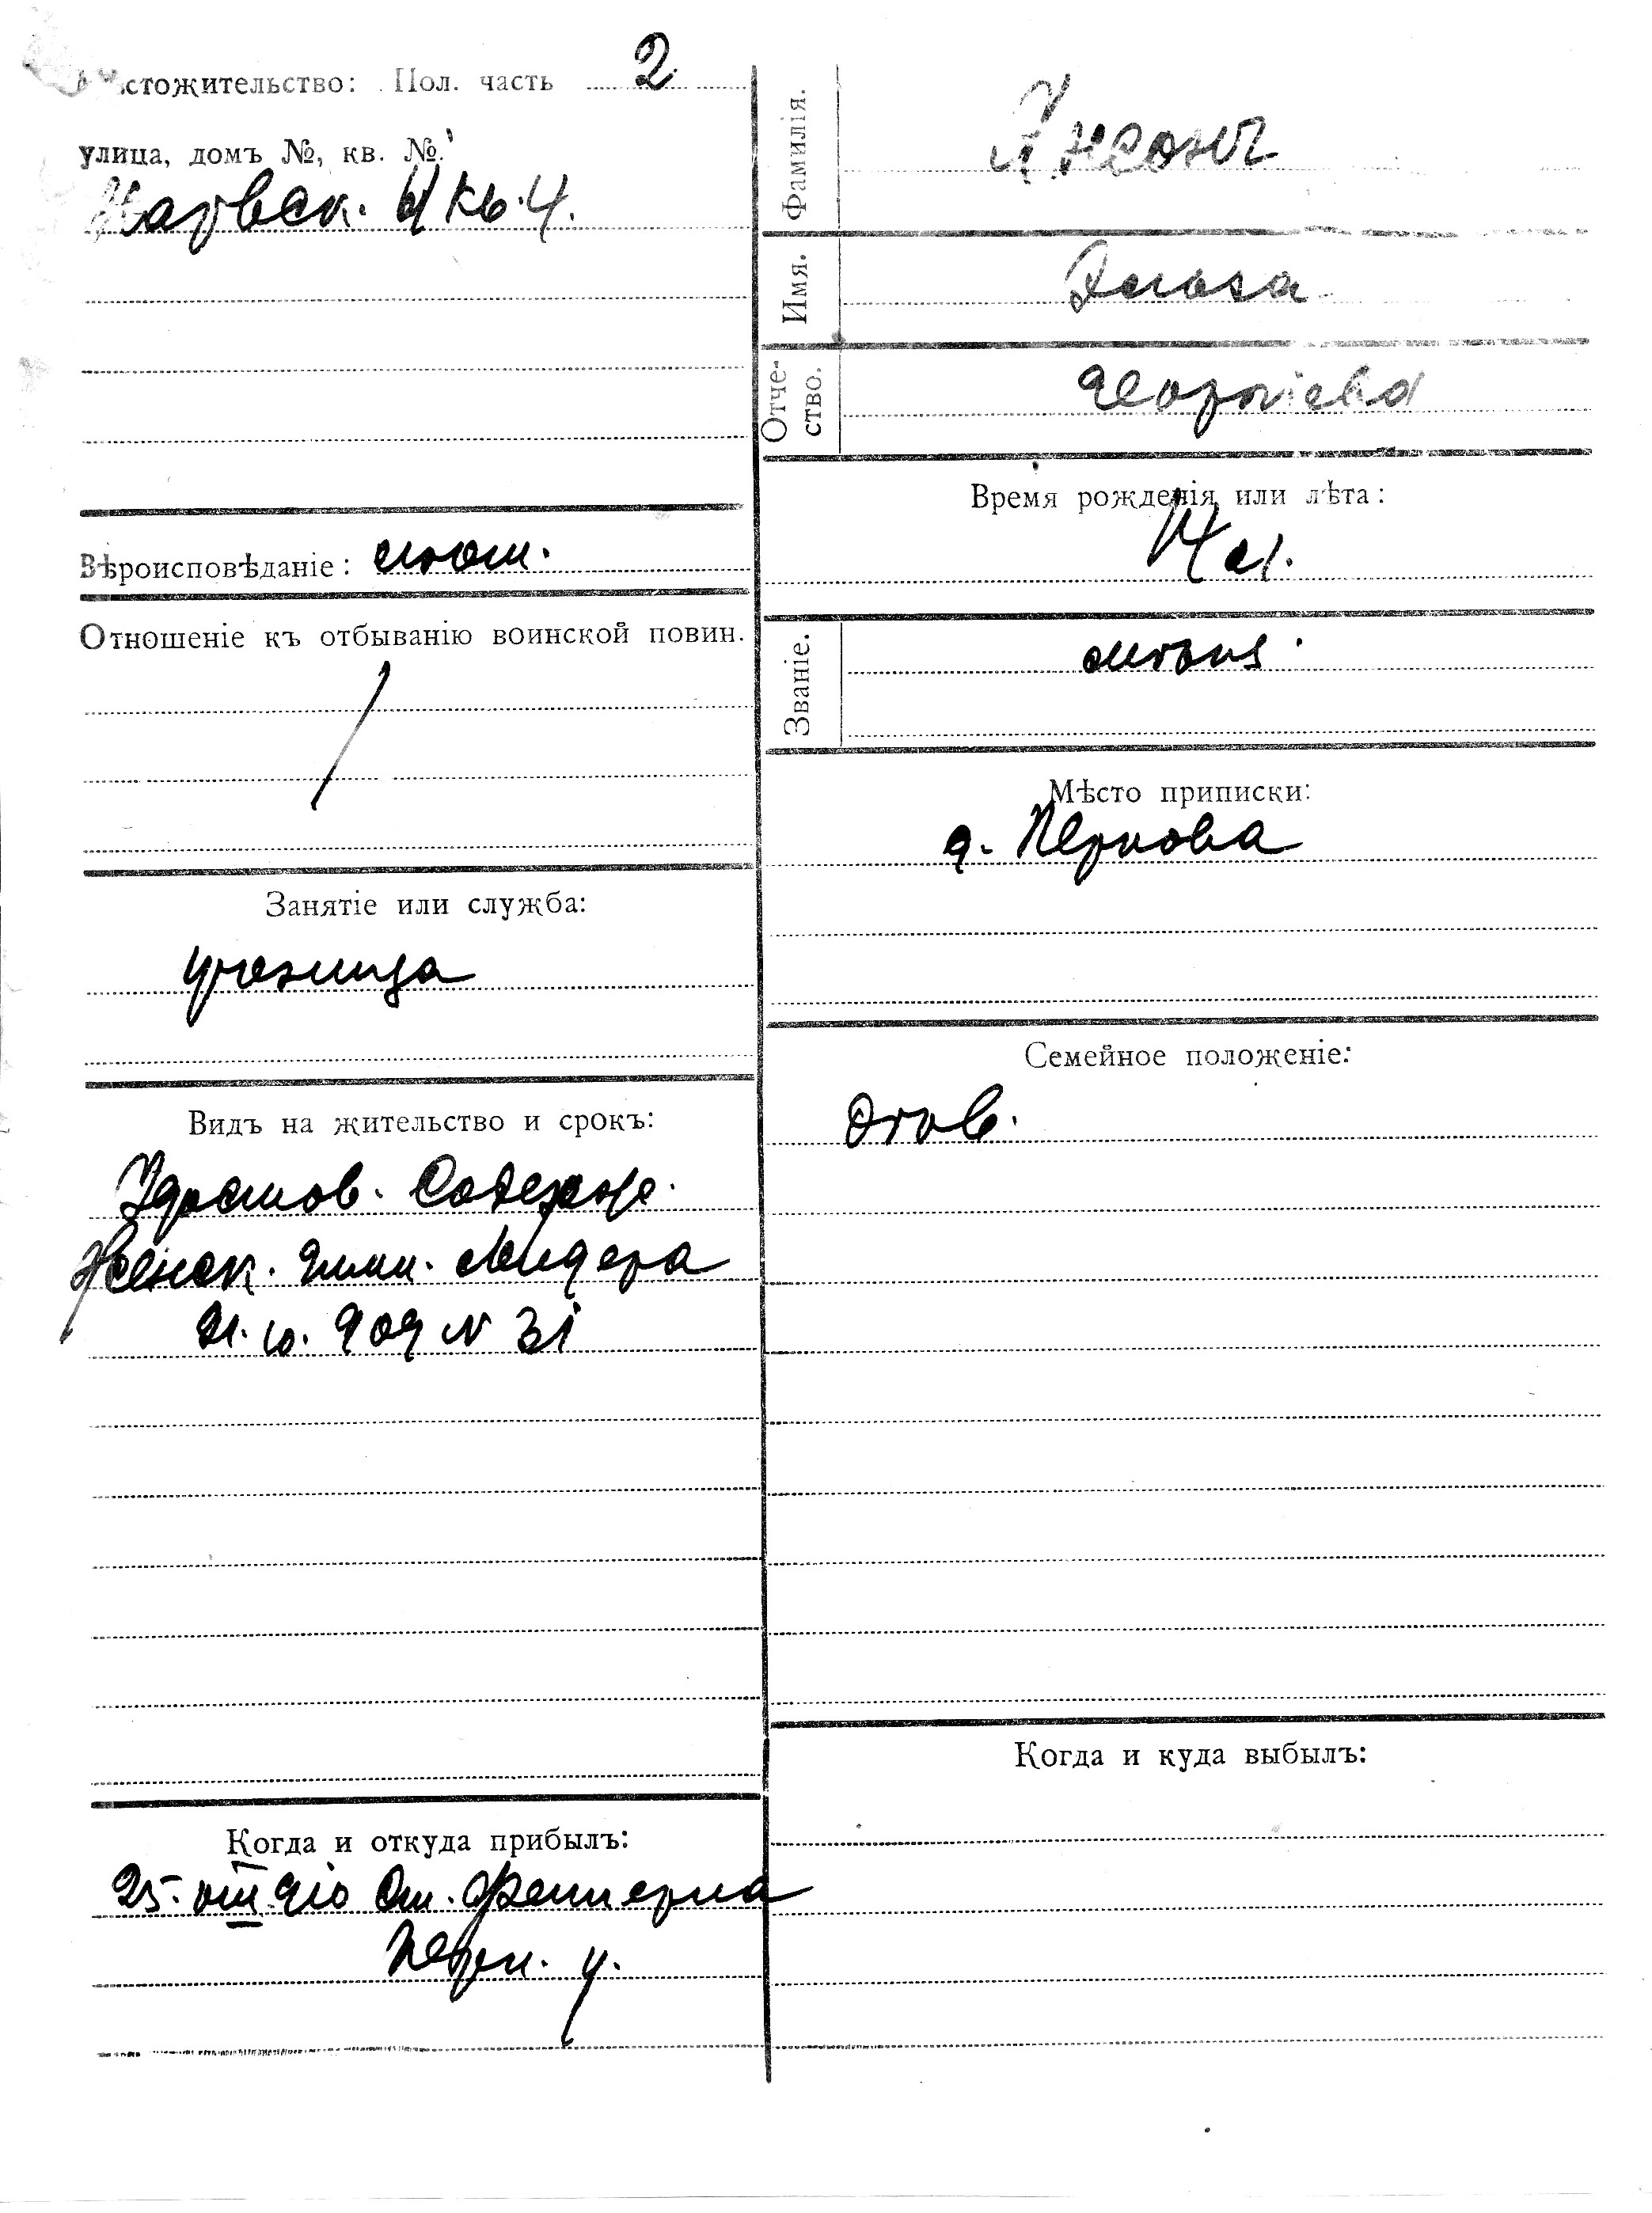 стожительство: Пол. часть 2.
улица, домъ №, кв. №.
Нарвск. кв. 4.
Вѣроисповѣданіе: лют.
Отношеніе къ отбыванію воинской повин.
Занятіе или служба:
ученица
Видъ на жительство и срокъ:
Удостов. Содерж.
Женск. Гимн.
909 N 31
Когда и откуда прибылъ:
25. VIII 910 Ст.
Перн. у.
Фамилія.
Имя.
Отче-
ство.
Георгіева
Время рожденія или лѣта:
14 л.
Званіе.
Мѣсто приписки:
г. Пернова
Семейное положеніе:
Когда и куда выбылъ: